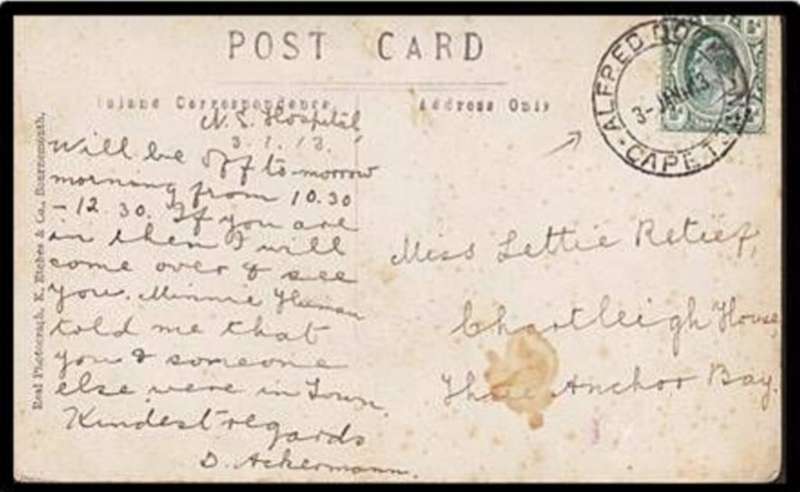 POST CARD
Inland Correspondence
Address Only
N. S. Hospital,
3. 1. 13.
Will be off to-morrow
morning from 10.30
- 12.30. If you are
in then I will
come over & see
you. Minnie Human
told me that
you & someone
else were in Town.
Kindest regards
D. Ackermann.
Miss Lettie Retief,
Chartleigh House,
Three Anchor Bay.
ALFRED DOCK
3-JAN.13
CAPE T
Real Photograph, K. Etches & Co., Bournemouth.